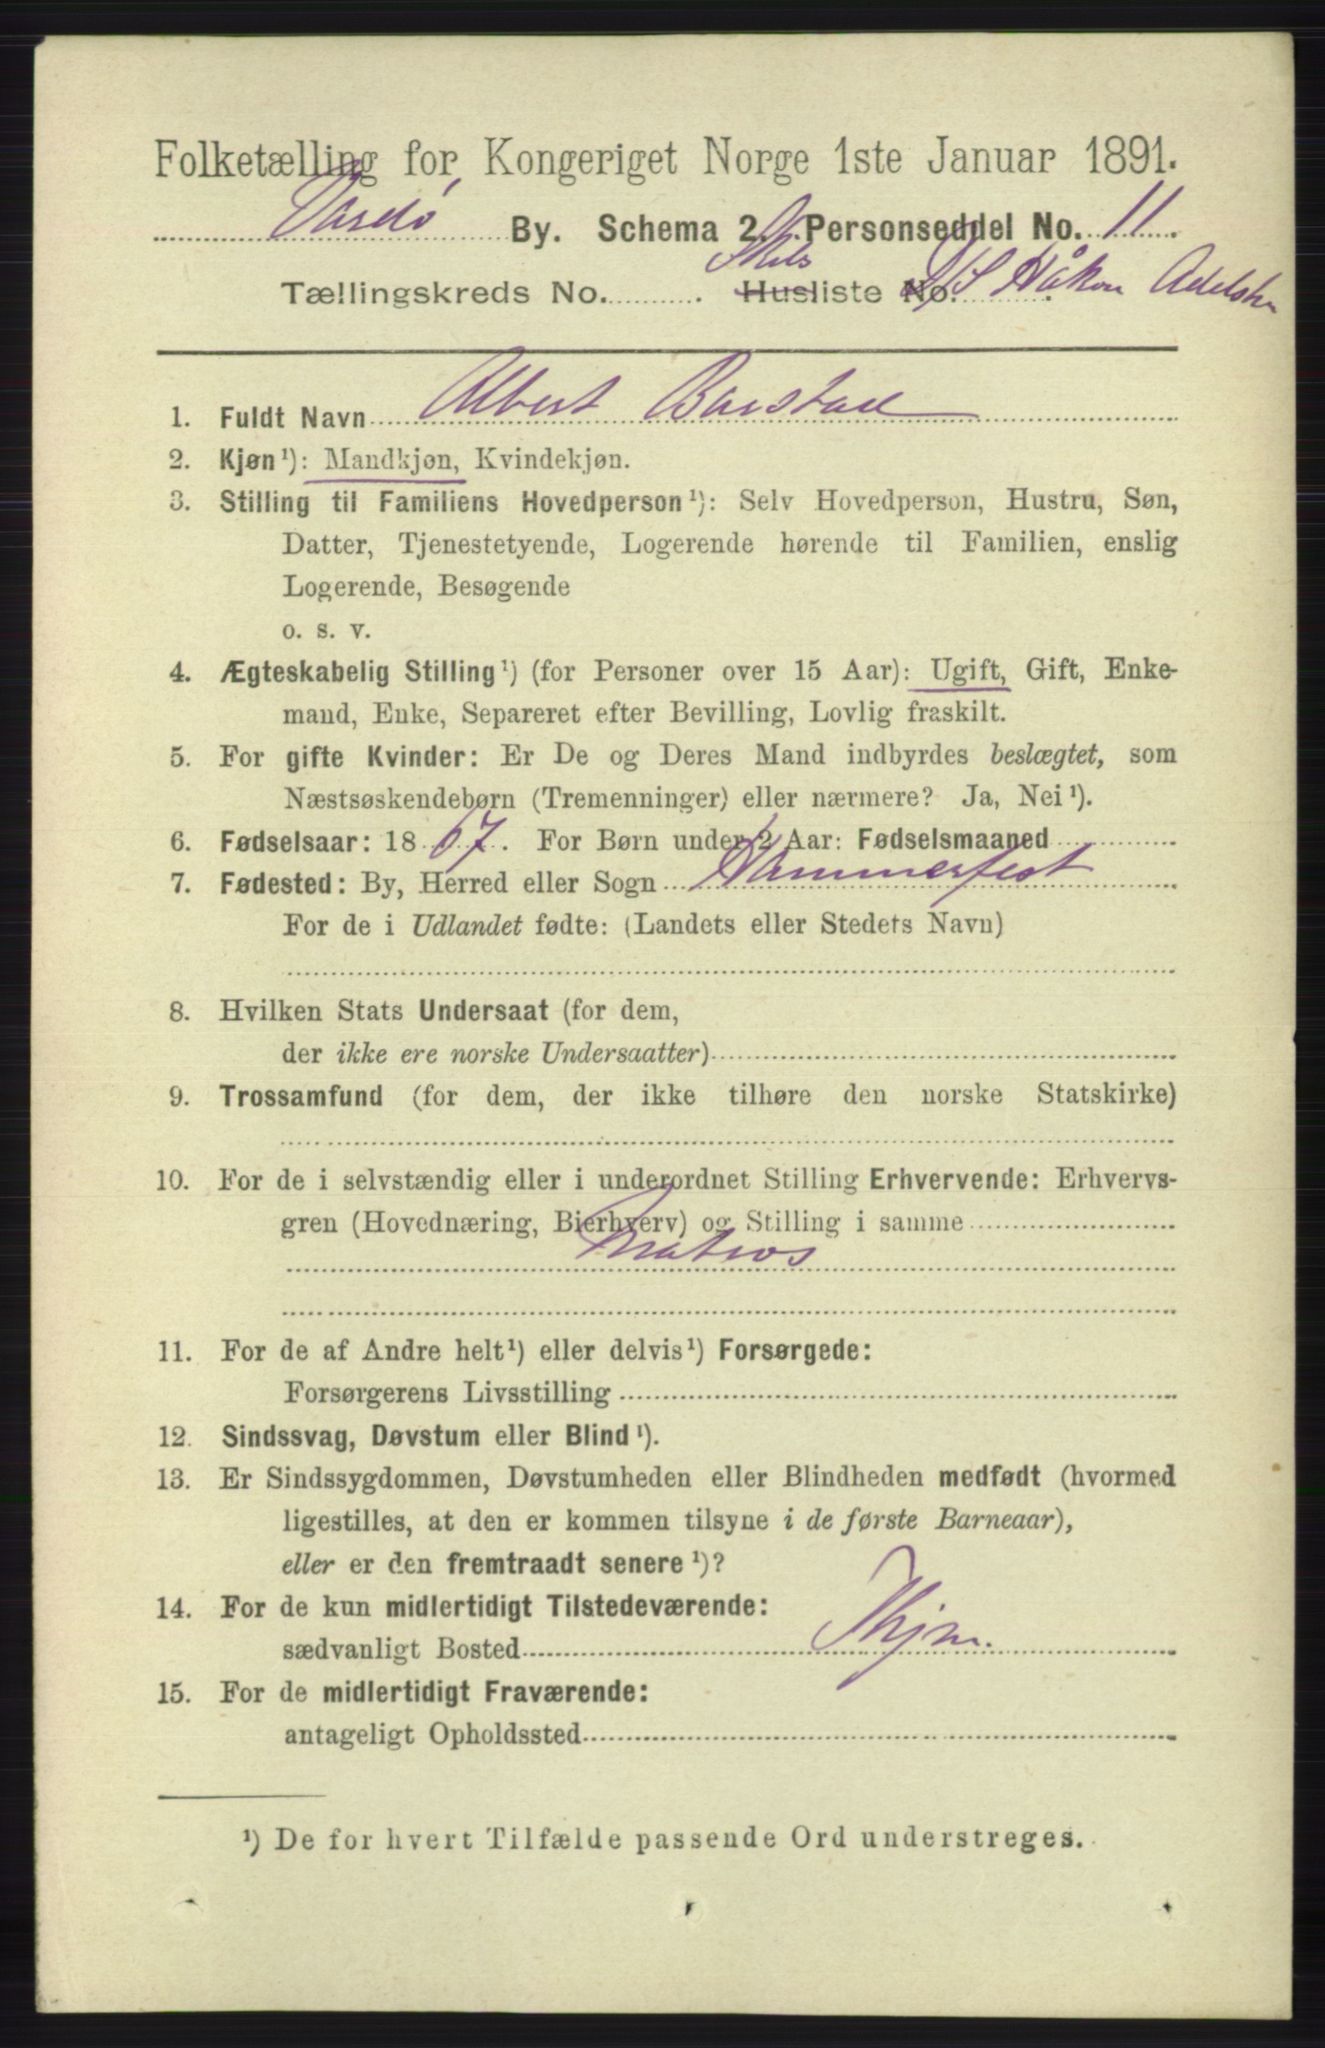 Folketælling for Kongeriget Norge 1ste Januar 1891.
Vardø By. Schema 2. Personseddel No. 11
Tællingskreds No. Skibs Husliste No. D/S Håkon Adelsten
1. Fuldt Navn Albert Barstad
2. Kjøn¹): Mandkjøn, Kvindekjøn.
3. Stilling til Familiens Hovedperson¹): Selv Hovedperson, Hustru, Søn,
Datter, Tjenestetyende, Logerende hørende til Familien, enslig
Logerende, Besøgende
o. s. v.
4. Ægteskabelig Stilling¹) (for Personer over 15 Aar): Ugift, Gift, Enke-
mand, Enke, Separeret efter Bevilling, Lovlig fraskilt.
5. For gifte Kvinder: Er De og Deres Mand indbyrdes beslægtet, som
Næstsøskendebørn (Tremenninger) eller nærmere? Ja, Nei¹).
6. Fødselsaar: 1867. For Børn under 2 Aar: Fødselsmaaned
7. Fødested: By, Herred eller Sogn Hammerfest
For de i Udlandet fødte: (Landets eller Stedets Navn)
8. Hvilken Stats Undersaat (for dem,
der ikke ere norske Undersaatter)
9. Trossamfund (for dem, der ikke tilhøre den norske Statskirke)
10. For de i selvstændig eller i underordnet Stilling Erhvervende: Erhvervs-
gren (Hovednæring, Bierhverv) og Stilling i samme
Matros
11. For de af Andre helt¹) eller delvis¹) Forsørgede:
Forsørgerens Livsstilling
12. Sindssvag, Døvstum eller Blind¹).
13. Er Sindssygdommen, Døvstumheden eller Blindheden medfødt (hvormed
ligestilles, at den er kommen tilsyne i de første Barneaar),
eller er den fremtraadt senere¹)?
14. For de kun midlertidigt Tilstedeværende:
sædvanligt Bosted Thjm.
15. For de midlertidigt Fraværende:
antageligt Opholdssted
¹) De for hvert Tilfælde passende Ord understreges.